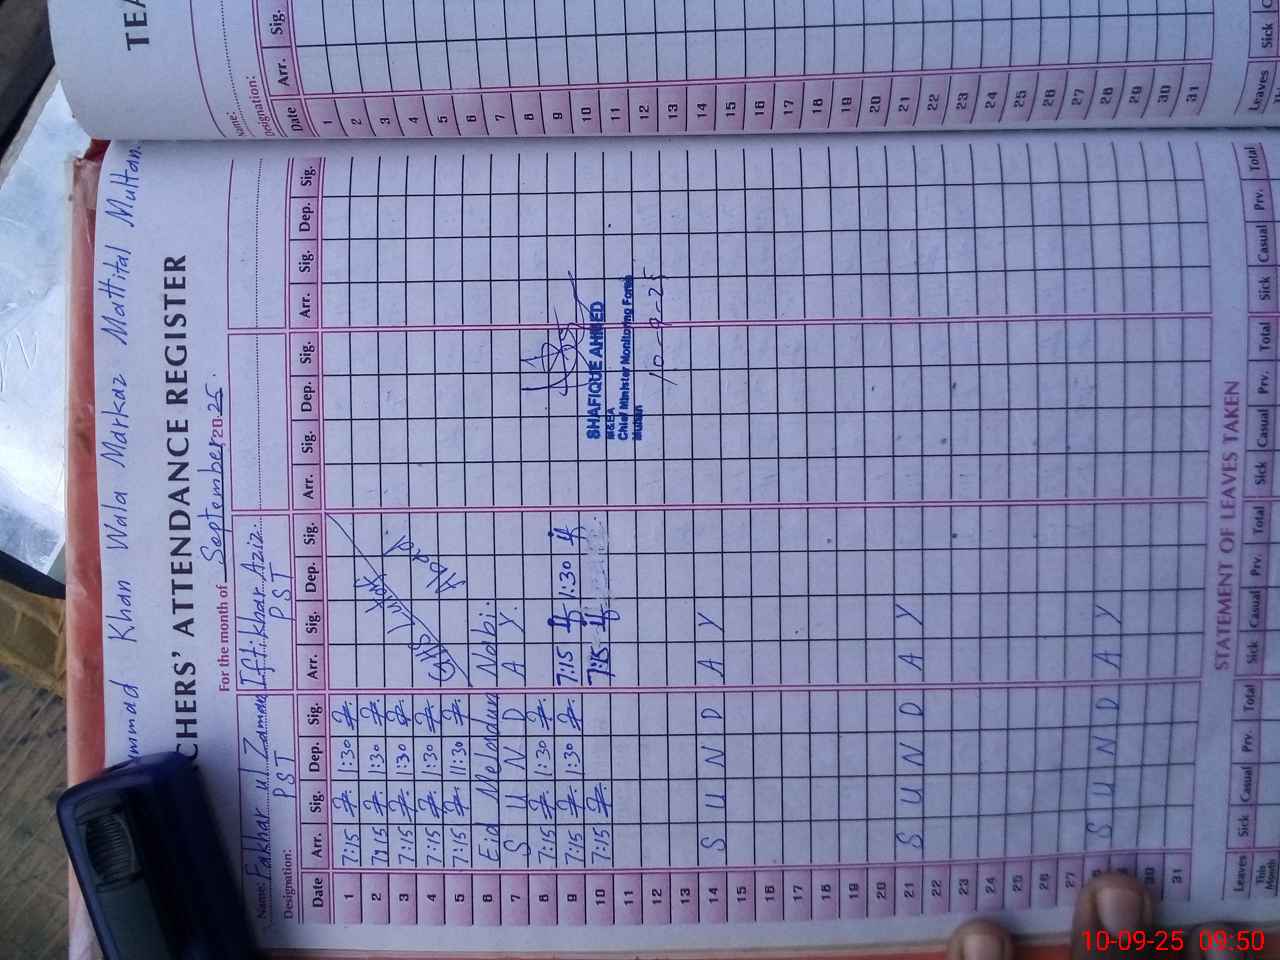 ummad Khan Wala Markaz Mattital Multan.
CHERS' ATTENDANCE REGISTER
For the month of September 2025.
Name: Fakhar ul Zaman Iftikhar Aziz
Designation: PST PST
Date Arr. Sig. Dep. Sig. Arr. Sig. Dep. Sig. Arr. Sig. Dep. Sig. Arr. Sig. Dep. Sig.
1 7:15 1:30
2 7:15 1:30
3 7:15 1:30
4 7:15 1:30
5 7:15 11:30
6 Eid Meladun Nabi.
7 S U N D A Y.
8 7:15 1:30
9 7:15 1:30 7:15 1:30
10 7:15 7:15
11
12
13
14 S U N D A Y
15
16
17
18
19
20
21 S U N D A Y
22
23
24
25
26
27
S U N D A Y
30
31
SHAFIQUE AHMED
M&EA
Chief Minister Monitoring Force
Multan
10-9-25
STATEMENT OF LEAVES TAKEN
Leaves Sick Casual Prv. Total Sick Casual Prv. Total Sick Casual Prv. Total Sick Casual Prv. Total
This Month
TEA
Name:
Designation:
Date Arr. Sig.
1
2
3
4
5
6
7
8
9
10
11
12
13
14
15
16
17
18
19
20
21
22
23
24
25
26
27
28
29
30
31
Leaves Sick
10-09-25 09:50